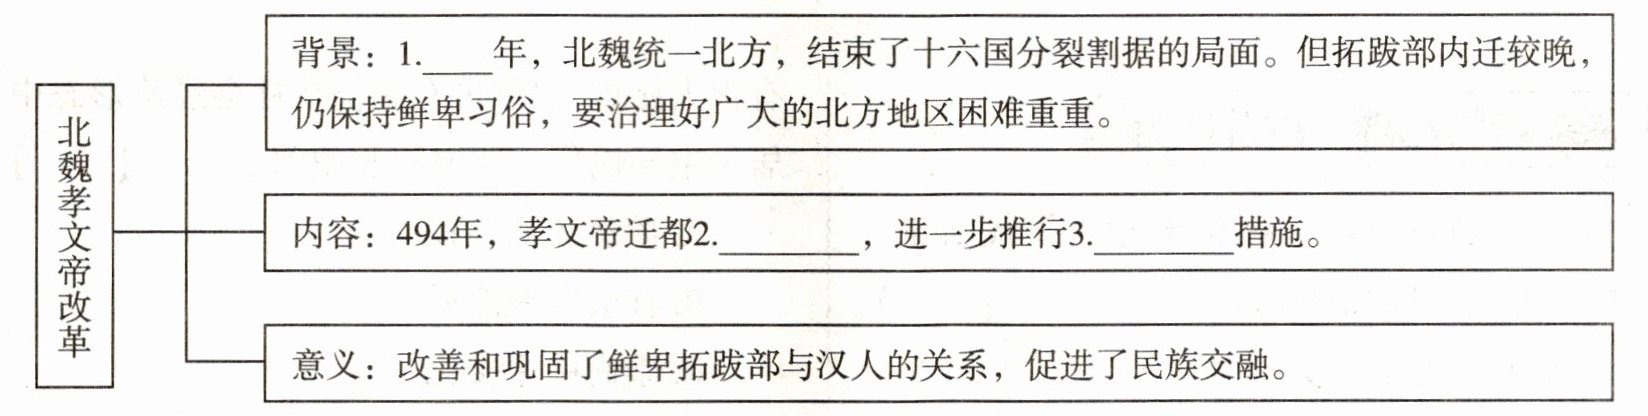 北魏孝文帝改革
背景：1.____年，北魏统一北方，结束了十六国分裂割据的局面。但拓跋部内迁较晚，
仍保持鲜卑习俗，要治理好广大的北方地区困难重重。
内容：494年，孝文帝迁都2.________，进一步推行3.________措施。
意义：改善和巩固了鲜卑拓跋部与汉人的关系，促进了民族交融。